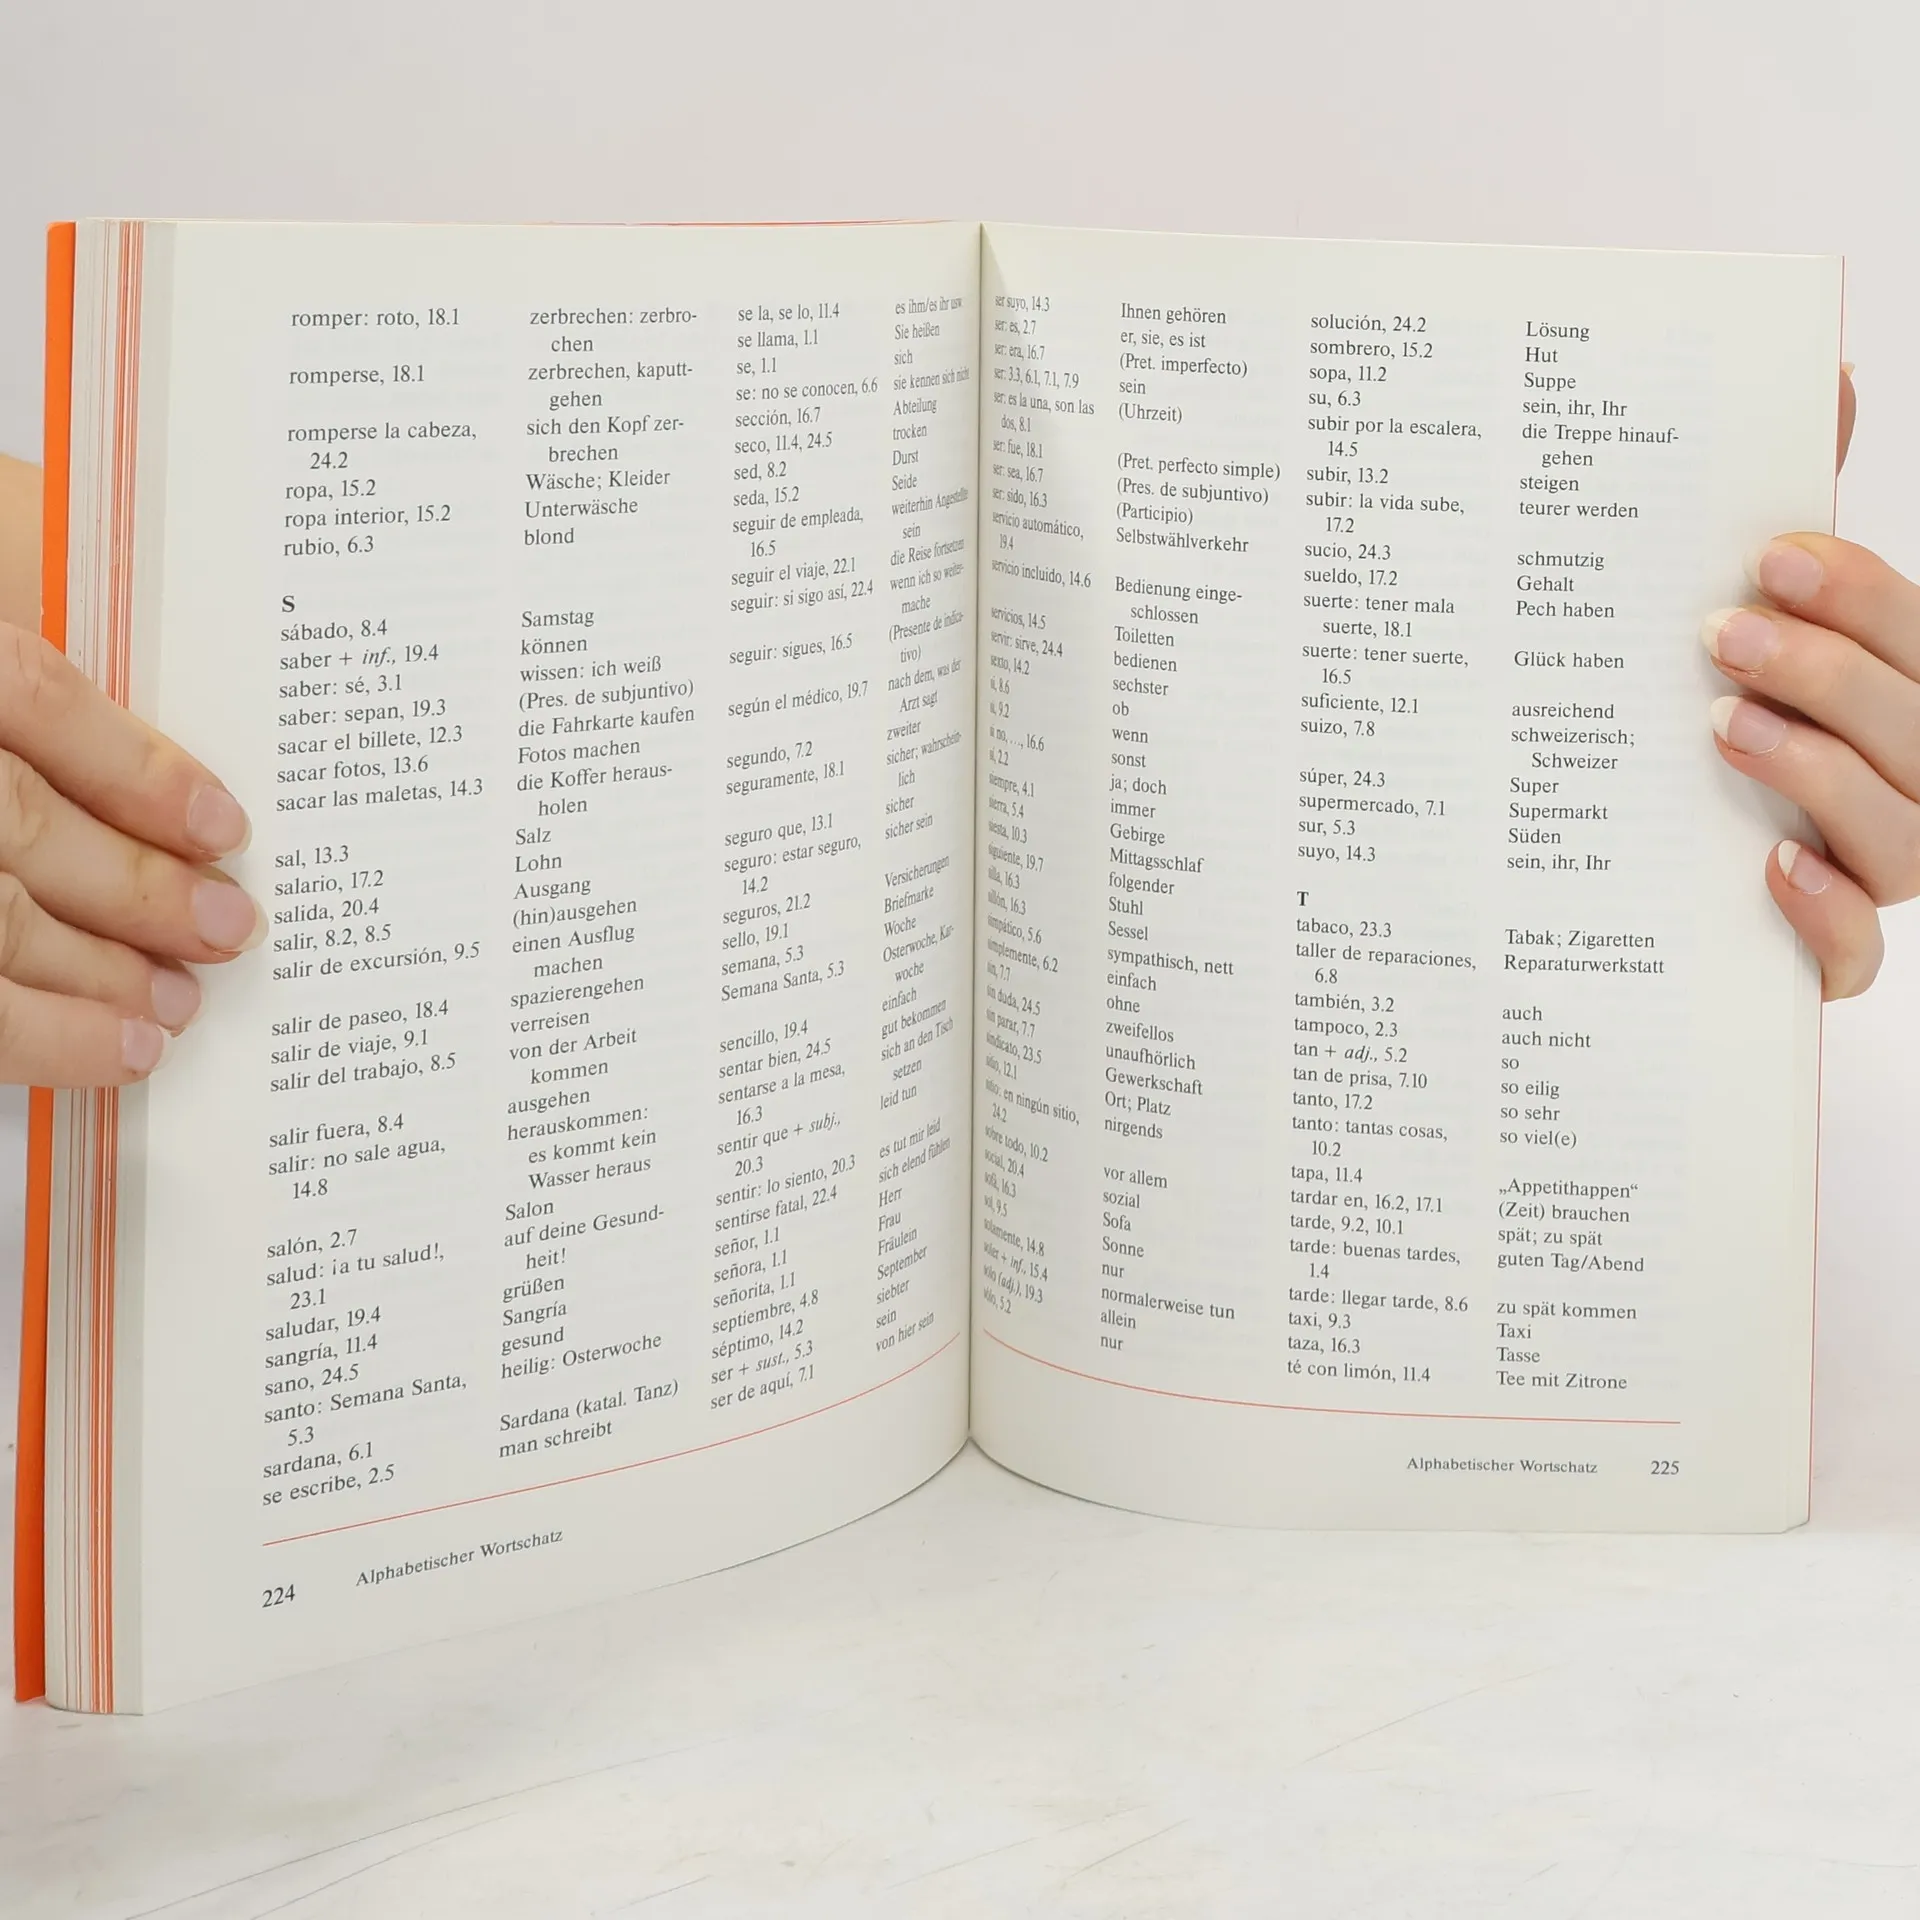 romper: roto, 18.1
romperse, 18.1
romperse la cabeza,
24.2
ropa, 15.2
ropa interior, 15.2
rubio, 6.3
S
sábado, 8.4
saber + inf., 19.4
saber: sé, 3.1
saber: sepan, 19.3
sacar el billete, 12.3
sacar fotos, 13.6
sacar las maletas, 14.3
sal, 13.3
salario, 17.2
salida, 20.4
salir, 8.2, 8.5
salir de excursión, 9.5
salir de paseo, 18.4
salir de viaje, 9.1
salir del trabajo, 8.5
salir fuera, 8.4
salir: no sale agua,
14.8
salón, 2.7
salud: ¡a tu salud!,
23.1
saludar, 19.4
sangría, 11.4
sano, 24.5
santo: Semana Santa,
5.3
sardana, 6.1
se escribe, 2.5
zerbrechen: zerbro-
chen
zerbrechen, kaputt-
gehen
sich den Kopf zer-
brechen
Wäsche; Kleider
Unterwäsche
blond
Samstag
können
wissen: ich weiß
(Pres. de subjuntivo)
die Fahrkarte kaufen
Fotos machen
die Koffer heraus-
holen
Salz
Lohn
Ausgang
(hin)ausgehen
einen Ausflug
machen
spazierengehen
verreisen
von der Arbeit
kommen
ausgehen
herauskommen:
es kommt kein
Wasser heraus
Salon
auf deine Gesund-
heit!
grüßen
Sangría
gesund
heilig: Osterwoche
Sardana (katal. Tanz)
man schreibt
se la, se lo, 11.4
se llama, 1.1
se, 1.1
se: no se conocen, 6.6
sección, 16.7
seco, 11.4, 24.5
sed, 8.2
seda, 15.2
seguir de empleada,
16.5
seguir el viaje, 22.1
seguir: si sigo así, 22.4
seguir: sigues, 16.5
según el médico, 19.7
segundo, 7.2
seguramente, 18.1
seguro que, 13.1
seguro: estar seguro,
14.2
seguros, 21.2
sello, 19.1
semana, 5.3
Semana Santa, 5.3
sencillo, 19.4
sentar bien, 24.5
sentarse a la mesa,
16.3
sentir que + subj.,
20.3
sentir: lo siento, 20.3
sentirse fatal, 22.4
señor, 1.1
señora, 1.1
señorita, 1.1
septiembre, 4.8
séptimo, 14.2
ser + sust., 5.3
ser de aquí, 7.1
es ihm/es ihr usw
Sie heißen
sich
sie kennen sich nicht
Abteilung
trocken
Durst
Seide
weiterhin Angestellte
sein
die Reise fortsetzen
wenn ich so weiter-
mache
(Presente de indica-
tivo)
nach dem, was der
Arzt sagt
zweiter
sicher; wahrschein-
lich
sicher
sicher sein
Versicherungen
Briefmarke
Woche
Osterwoche, Kar-
woche
einfach
gut bekommen
sich an den Tisch
setzen
leid tun
es tut mir leid
sich elend fühlen
Herr
Frau
Fräulein
September
siebter
sein
von hier sein
224 Alphabetischer Wortschatz
ser suyo, 14.3
ser: es, 2.7
ser: era, 16.7
ser: 3.3, 6.1, 7.1, 7.9
ser: es la una, son las
dos, 8.1
ser: fue, 18.1
ser: sea, 16.7
ser: sido, 16.3
servicio automático,
19.4
servicio incluido, 14.6
servicios, 14.5
servir: sirve, 24.4
sexto, 14.2
si, 8.6
si, 9.2
si no, ..., 16.6
sí, 2.2
siempre, 4.1
sierra, 5.4
siesta, 10.3
siguiente, 19.7
silla, 16.3
sillón, 16.3
simpático, 5.6
simplemente, 6.2
sin, 7.7
sin duda, 24.5
sin parar, 7.7
sindicato, 23.5
sitio, 12.1
sitio: en ningún sitio,
24.2
sobre todo, 10.2
social, 20.4
sofá, 16.3
sol, 9.5
solamente, 14.8
soler + inf., 15.4
solo (adj.), 19.3
sólo, 5.2
Ihnen gehören
er, sie, es ist
(Pret. imperfecto)
sein
(Uhrzeit)
(Pret. perfecto simple)
(Pres. de subjuntivo)
(Participio)
Selbstwählverkehr
Bedienung einge-
schlossen
Toiletten
bedienen
sechster
ob
wenn
sonst
ja; doch
immer
Gebirge
Mittagsschlaf
folgender
Stuhl
Sessel
sympathisch, nett
einfach
ohne
zweifellos
unaufhörlich
Gewerkschaft
Ort; Platz
nirgends
vor allem
sozial
Sofa
Sonne
nur
normalerweise tun
allein
nur
solución, 24.2
sombrero, 15.2
sopa, 11.2
su, 6.3
subir por la escalera,
14.5
subir, 13.2
subir: la vida sube,
17.2
sucio, 24.3
sueldo, 17.2
suerte: tener mala
suerte, 18.1
suerte: tener suerte,
16.5
suficiente, 12.1
suizo, 7.8
súper, 24.3
supermercado, 7.1
sur, 5.3
suyo, 14.3
T
tabaco, 23.3
taller de reparaciones,
6.8
también, 3.2
tampoco, 2.3
tan + adj., 5.2
tan de prisa, 7.10
tanto, 17.2
tanto: tantas cosas,
10.2
tapa, 11.4
tardar en, 16.2, 17.1
tarde, 9.2, 10.1
tarde: buenas tardes,
1.4
tarde: llegar tarde, 8.6
taxi, 9.3
taza, 16.3
té con limón, 11.4
Lösung
Hut
Suppe
sein, ihr, Ihr
die Treppe hinauf-
gehen
steigen
teurer werden
schmutzig
Gehalt
Pech haben
Glück haben
ausreichend
schweizerisch;
Schweizer
Super
Supermarkt
Süden
sein, ihr, Ihr
Tabak; Zigaretten
Reparaturwerkstatt
auch
auch nicht
so
so eilig
so sehr
so viel(e)
„Appetithappen“
(Zeit) brauchen
spät; zu spät
guten Tag/Abend
zu spät kommen
Taxi
Tasse
Tee mit Zitrone
Alphabetischer Wortschatz 225